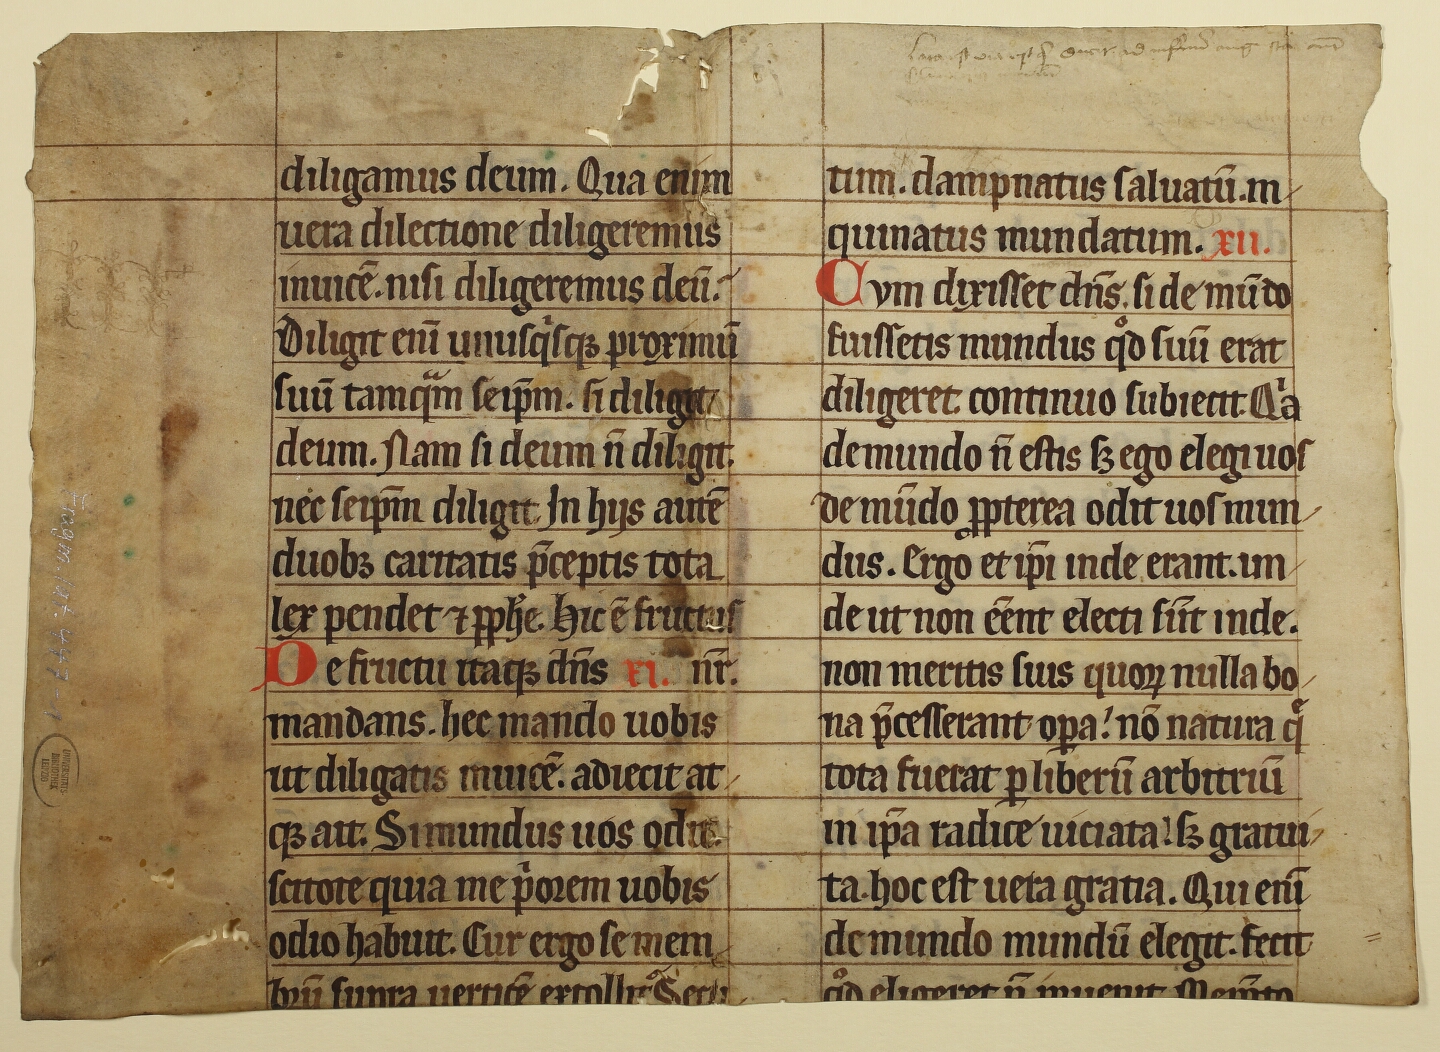 diligamus deum. Qua enim
uera dilectione diligeremus
inuicē. nisi diligeremus deū.
Diligit eni̅ unusq̍sqȝ proximū
suū tamq̄m seip̄m. si diligit
deum. Nam si deum n̄ diligit.
nec seip̄m diligit. In hijs autē
duobȝ caritatis p̄ceptis tota
lex pendet ⁊ ꝓph̄e. Hic ē fructus
De fructu itaqȝ dn̄s xi. nr̄.
mandans. hec mando uobis
ut diligatis inuicē. adiecit at
qȝ ait. Si mundus uos odit.
scitote quia me p̍orem uobis
odio habuit. Cur ergo se mem
bꝝ̄ supra uerticē extollit
tum. dampnatus saluatū. in
quinatus mundatum. xii.
Cvm dixisset dn̄s. si de mūdo
fuissetis mundus qͦd suū erat
diligeret. continuo subiecit. Qͥa
de mundo n̄ estis sȝ ego elegi uos
de mūdo ꝓpterea odit uos mun
dus. Ergo et ip̄i inde erant. un
de ut non e̅ent electi sūt inde.
non meritis suis quoꝝ nulla bo
na p̄cesserant op̄a. nō natura q̄
tota fuerat ꝑ liberū arbitriū
in ip̄a radice uiciata. sȝ gratui
ta. hoc est uera gratia. Qui enī
de mundo mundū elegit. fecit
qͦd eligeret n̄ inuenit.
Fragm. lat. 447-1
UNIVERSITATIS
BIBLIOTHEK
LEIPZIG